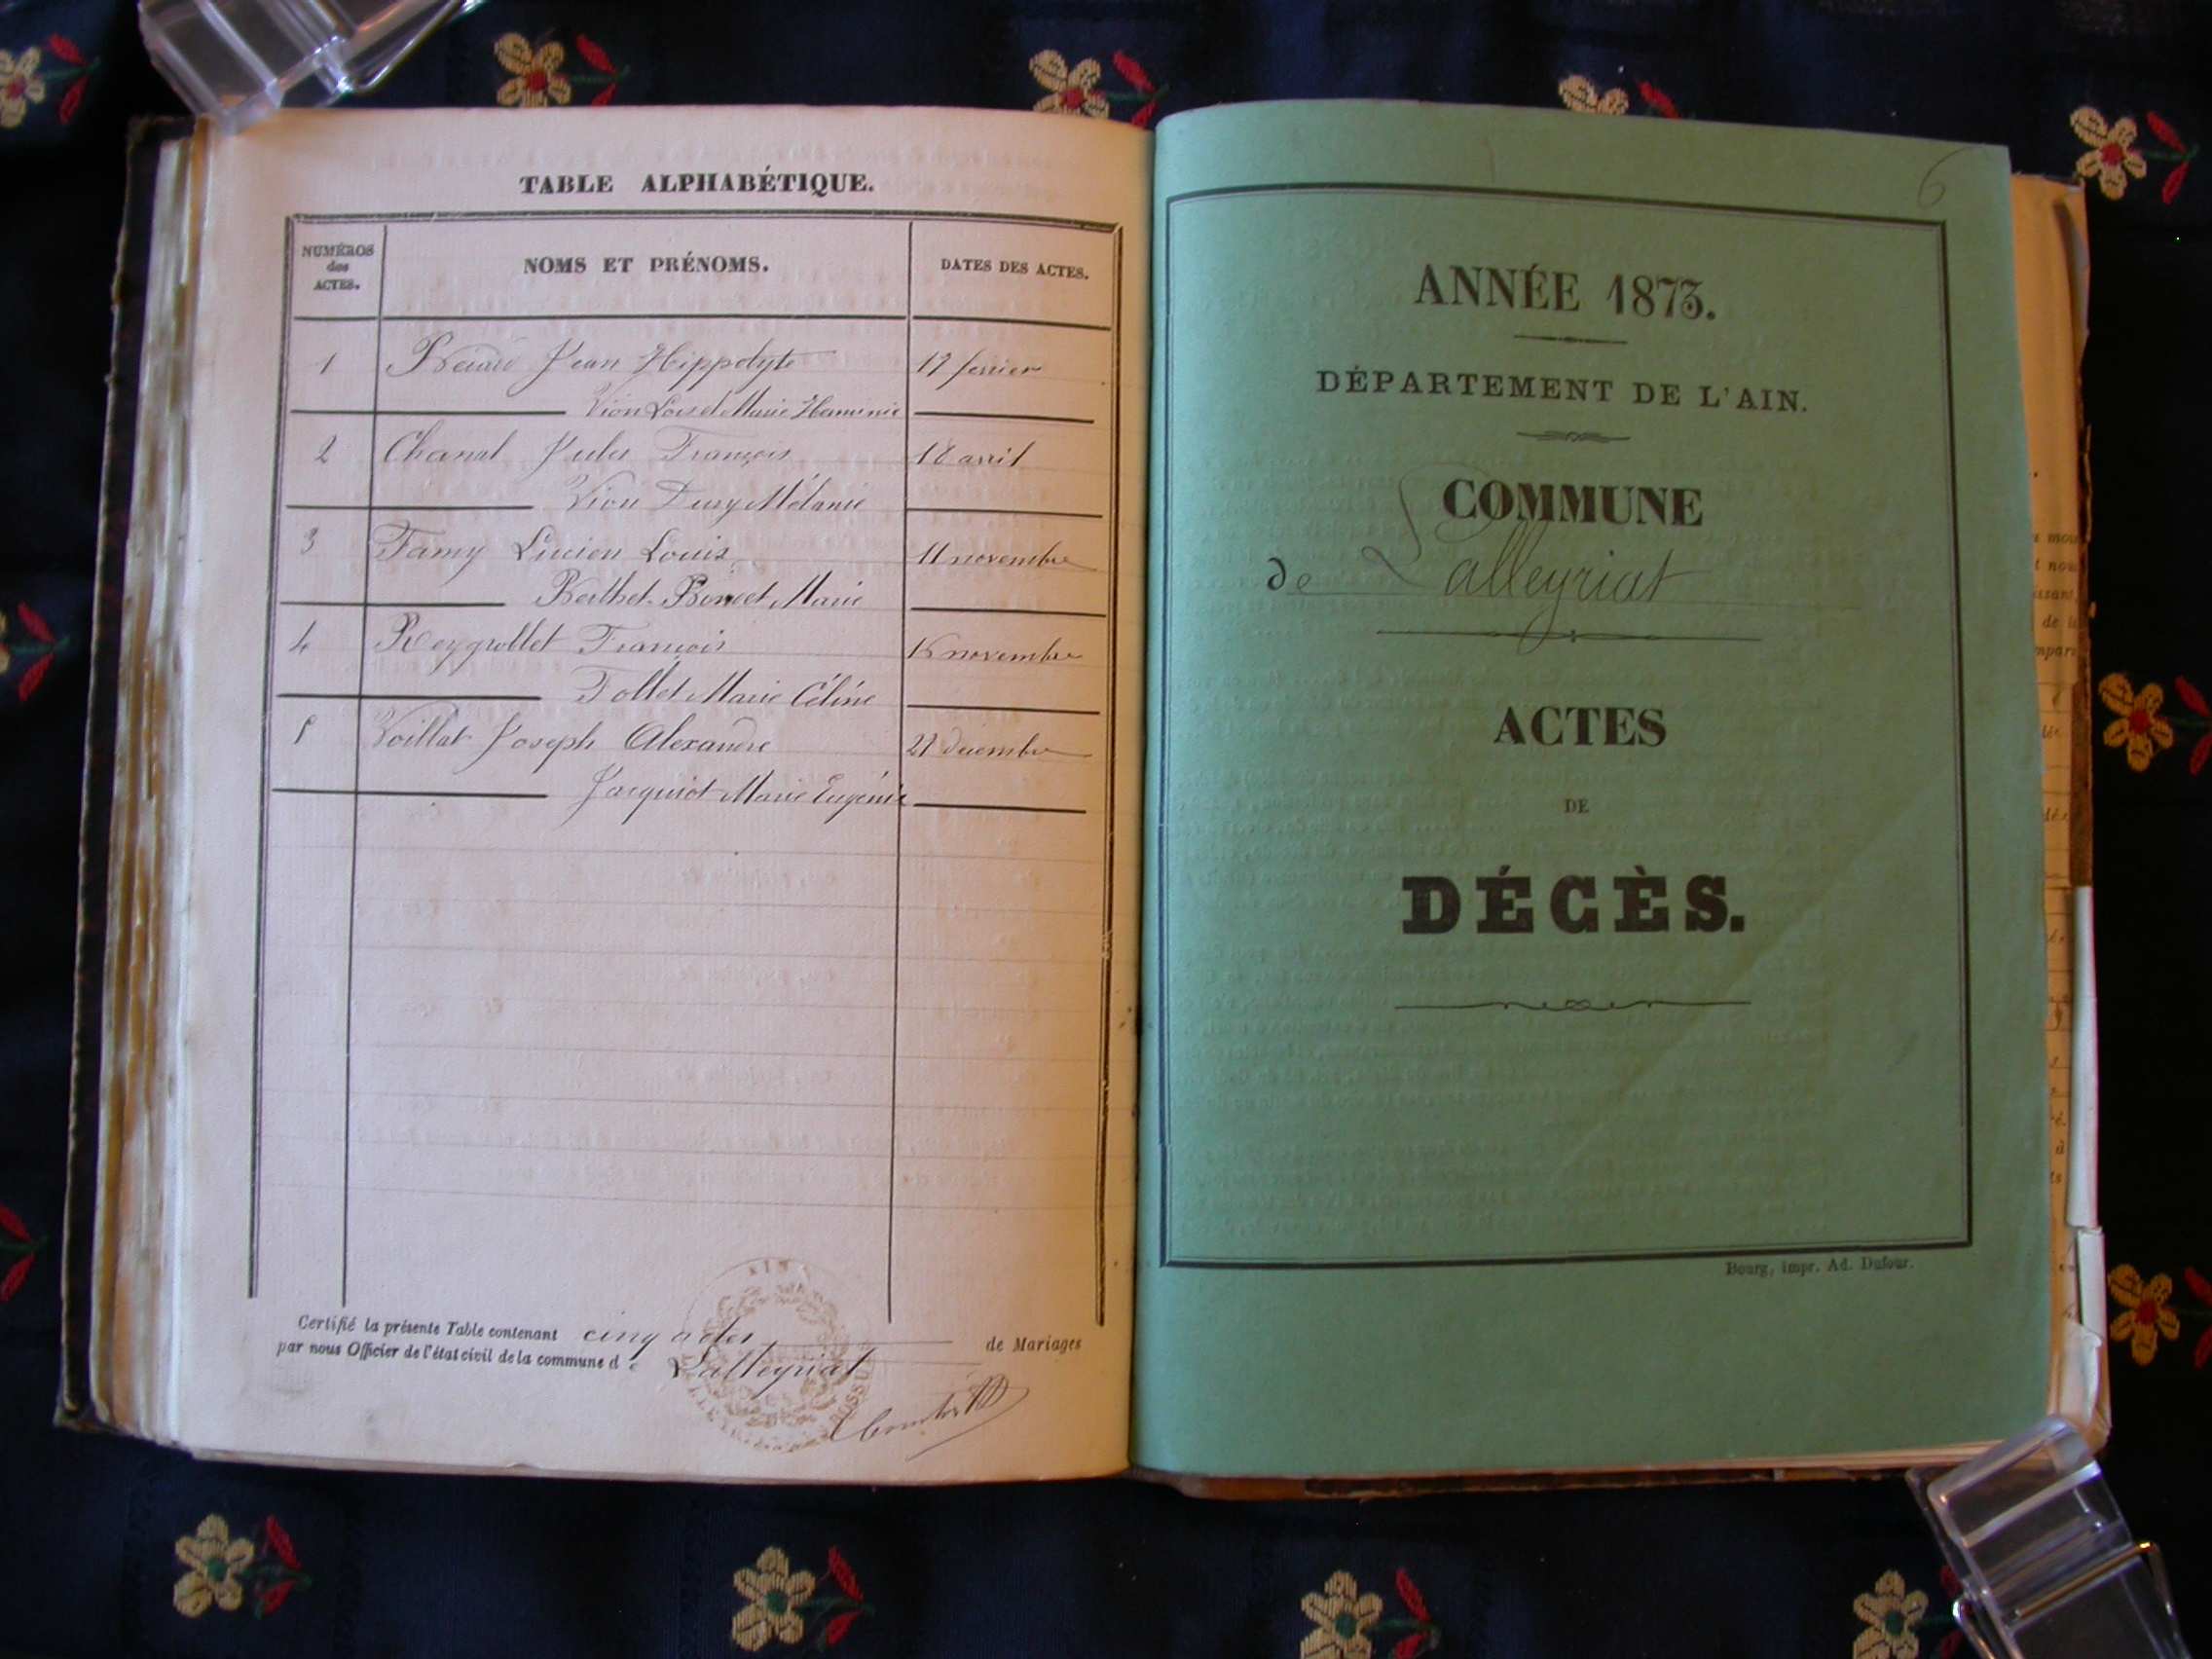 TABLE ALPHABÉTIQUE.
NUMÉROS
des
ACTES.
NOMS ET PRÉNOMS.
DATES DES ACTES.
1 Jean Hippolyte 17 février
Vion Loisel Marie Herminie
2 Chanal Jules François 18 avril
Vion Dury Mélanie
3 Famy Lucien Louis 11 novembre
Berthet-Bondet Marie
4 Reygrollet François 15 novembre
Follet Marie Céline
5 Voillat Joseph Alexandre 27 décembre
Jacquiot Marie Eugénie
Certifié la présente Table contenant cinq actes de Mariages
par nous Officier de l'état civil de la commune de Lalleyriat
6
ANNÉE 1873.
DÉPARTEMENT DE L'AIN.
COMMUNE
de Lalleyriat
ACTES
DE
DÉCÈS.
Bourg, impr. Ad. Dufour.